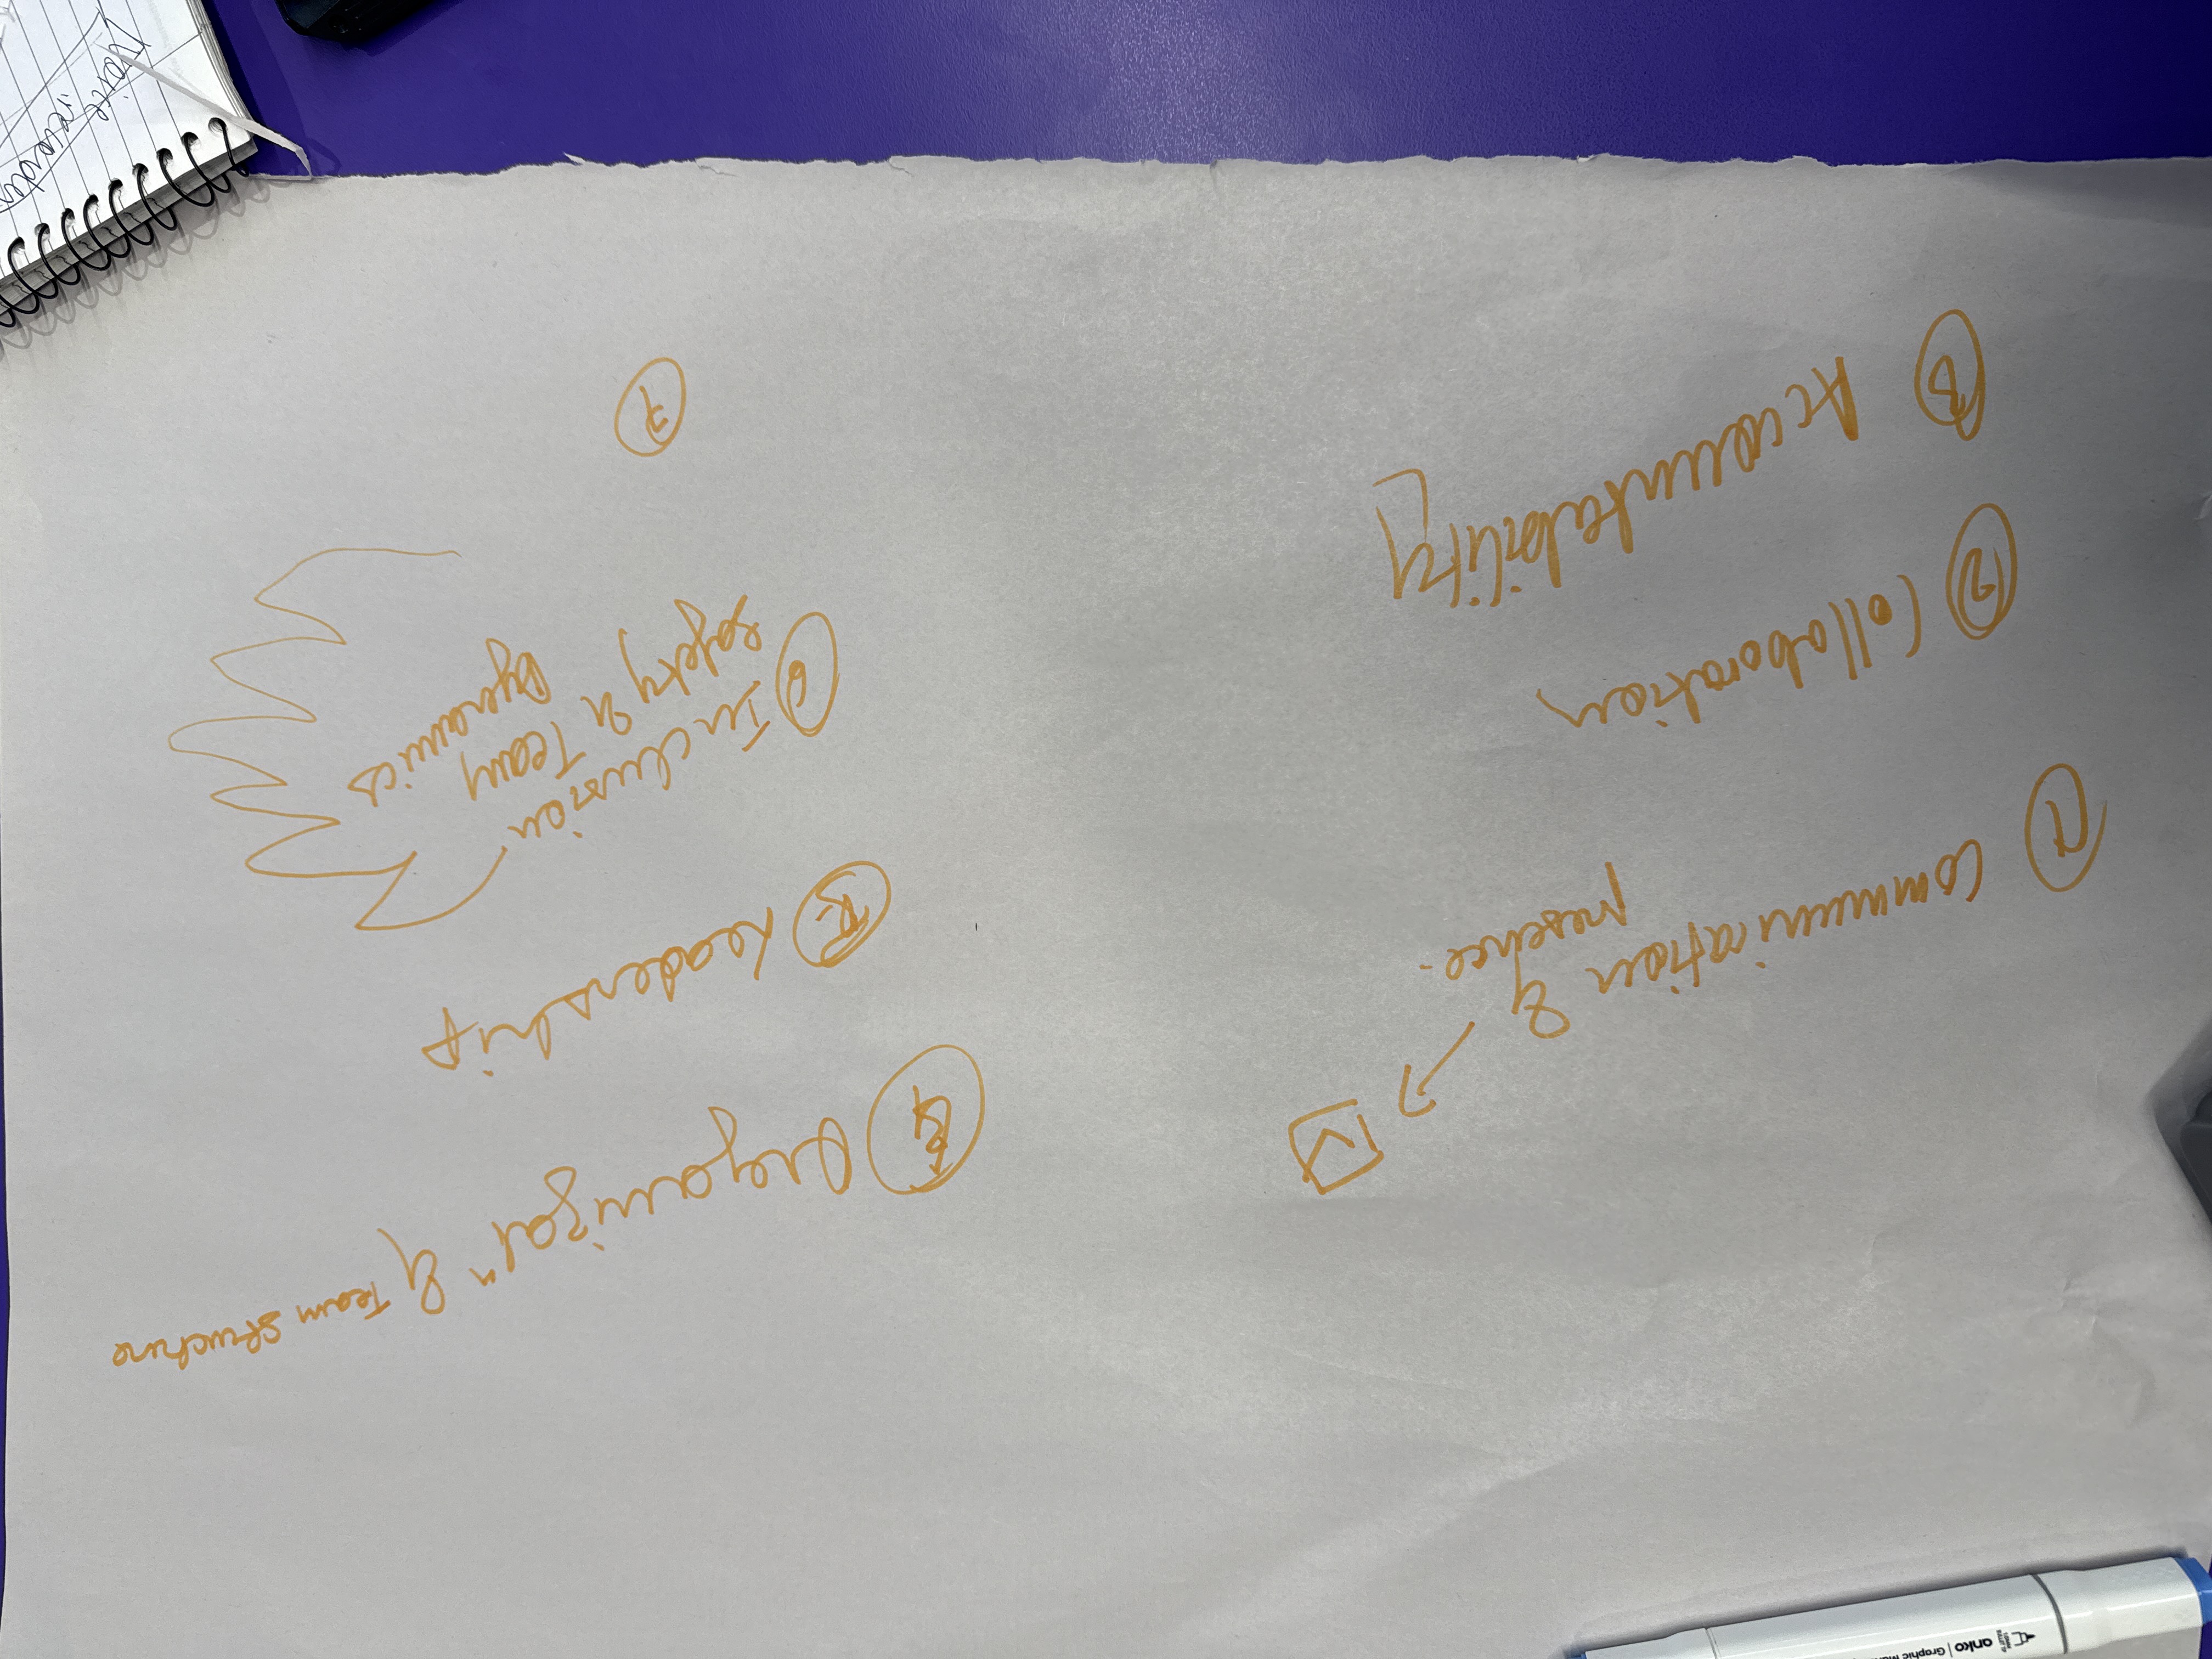 1 Communication &
presence.
2 Collaboration
3 Accountability
4 Organizatn & Team structure
5 Leadership
6 Inclusion,
safety n Team
Dynamics
7
Noise
anko | Graphic